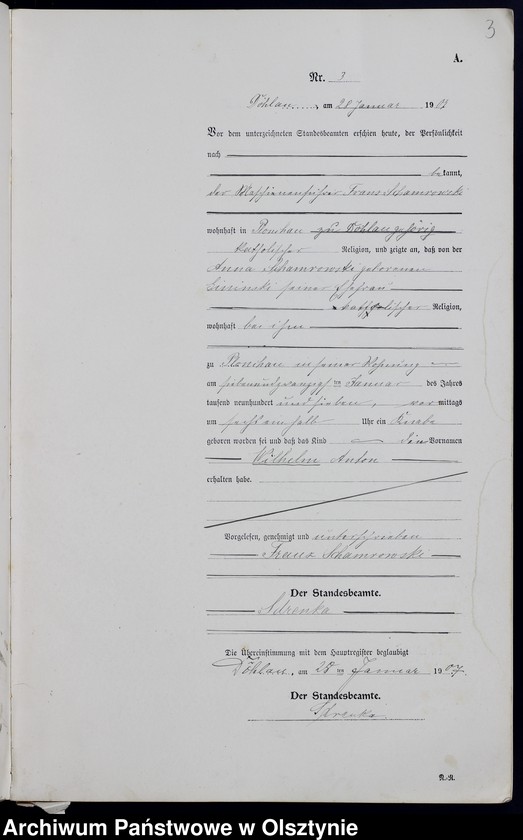 3
A.
Nr. 3
Döhlau, am 28 Januar 1907
Vor dem unterzeichneten Standesbeamten erschien heute, der Persönlichkeit
nach
bekannt,
der Maschinenführer Franz Schamrowski
wohnhaft in zu Döhlau gehörig
katholischer Religion, und zeigte an, daß von der
Anna Schamrowski geborenen
seiner Ehefrau
katholischer Religion,
wohnhaft bei ihm
zu in seiner Wohnung
am siebenundzwanzigsten Januar des Jahres
tausend neunhundert und sieben, vormittags
um halb Uhr ein Knabe
geboren worden sei und daß das Kind die Vornamen
Wilhelm Anton
erhalten habe.
Vorgelesen, genehmigt und unterschrieben
Franz Schamrowski
Der Standesbeamte.
Die Übereinstimmung mit dem Hauptregister beglaubigt
Döhlau, am 28 ten Januar 1907.
Der Standesbeamte.
Archiwum Państwowe w Olsztynie